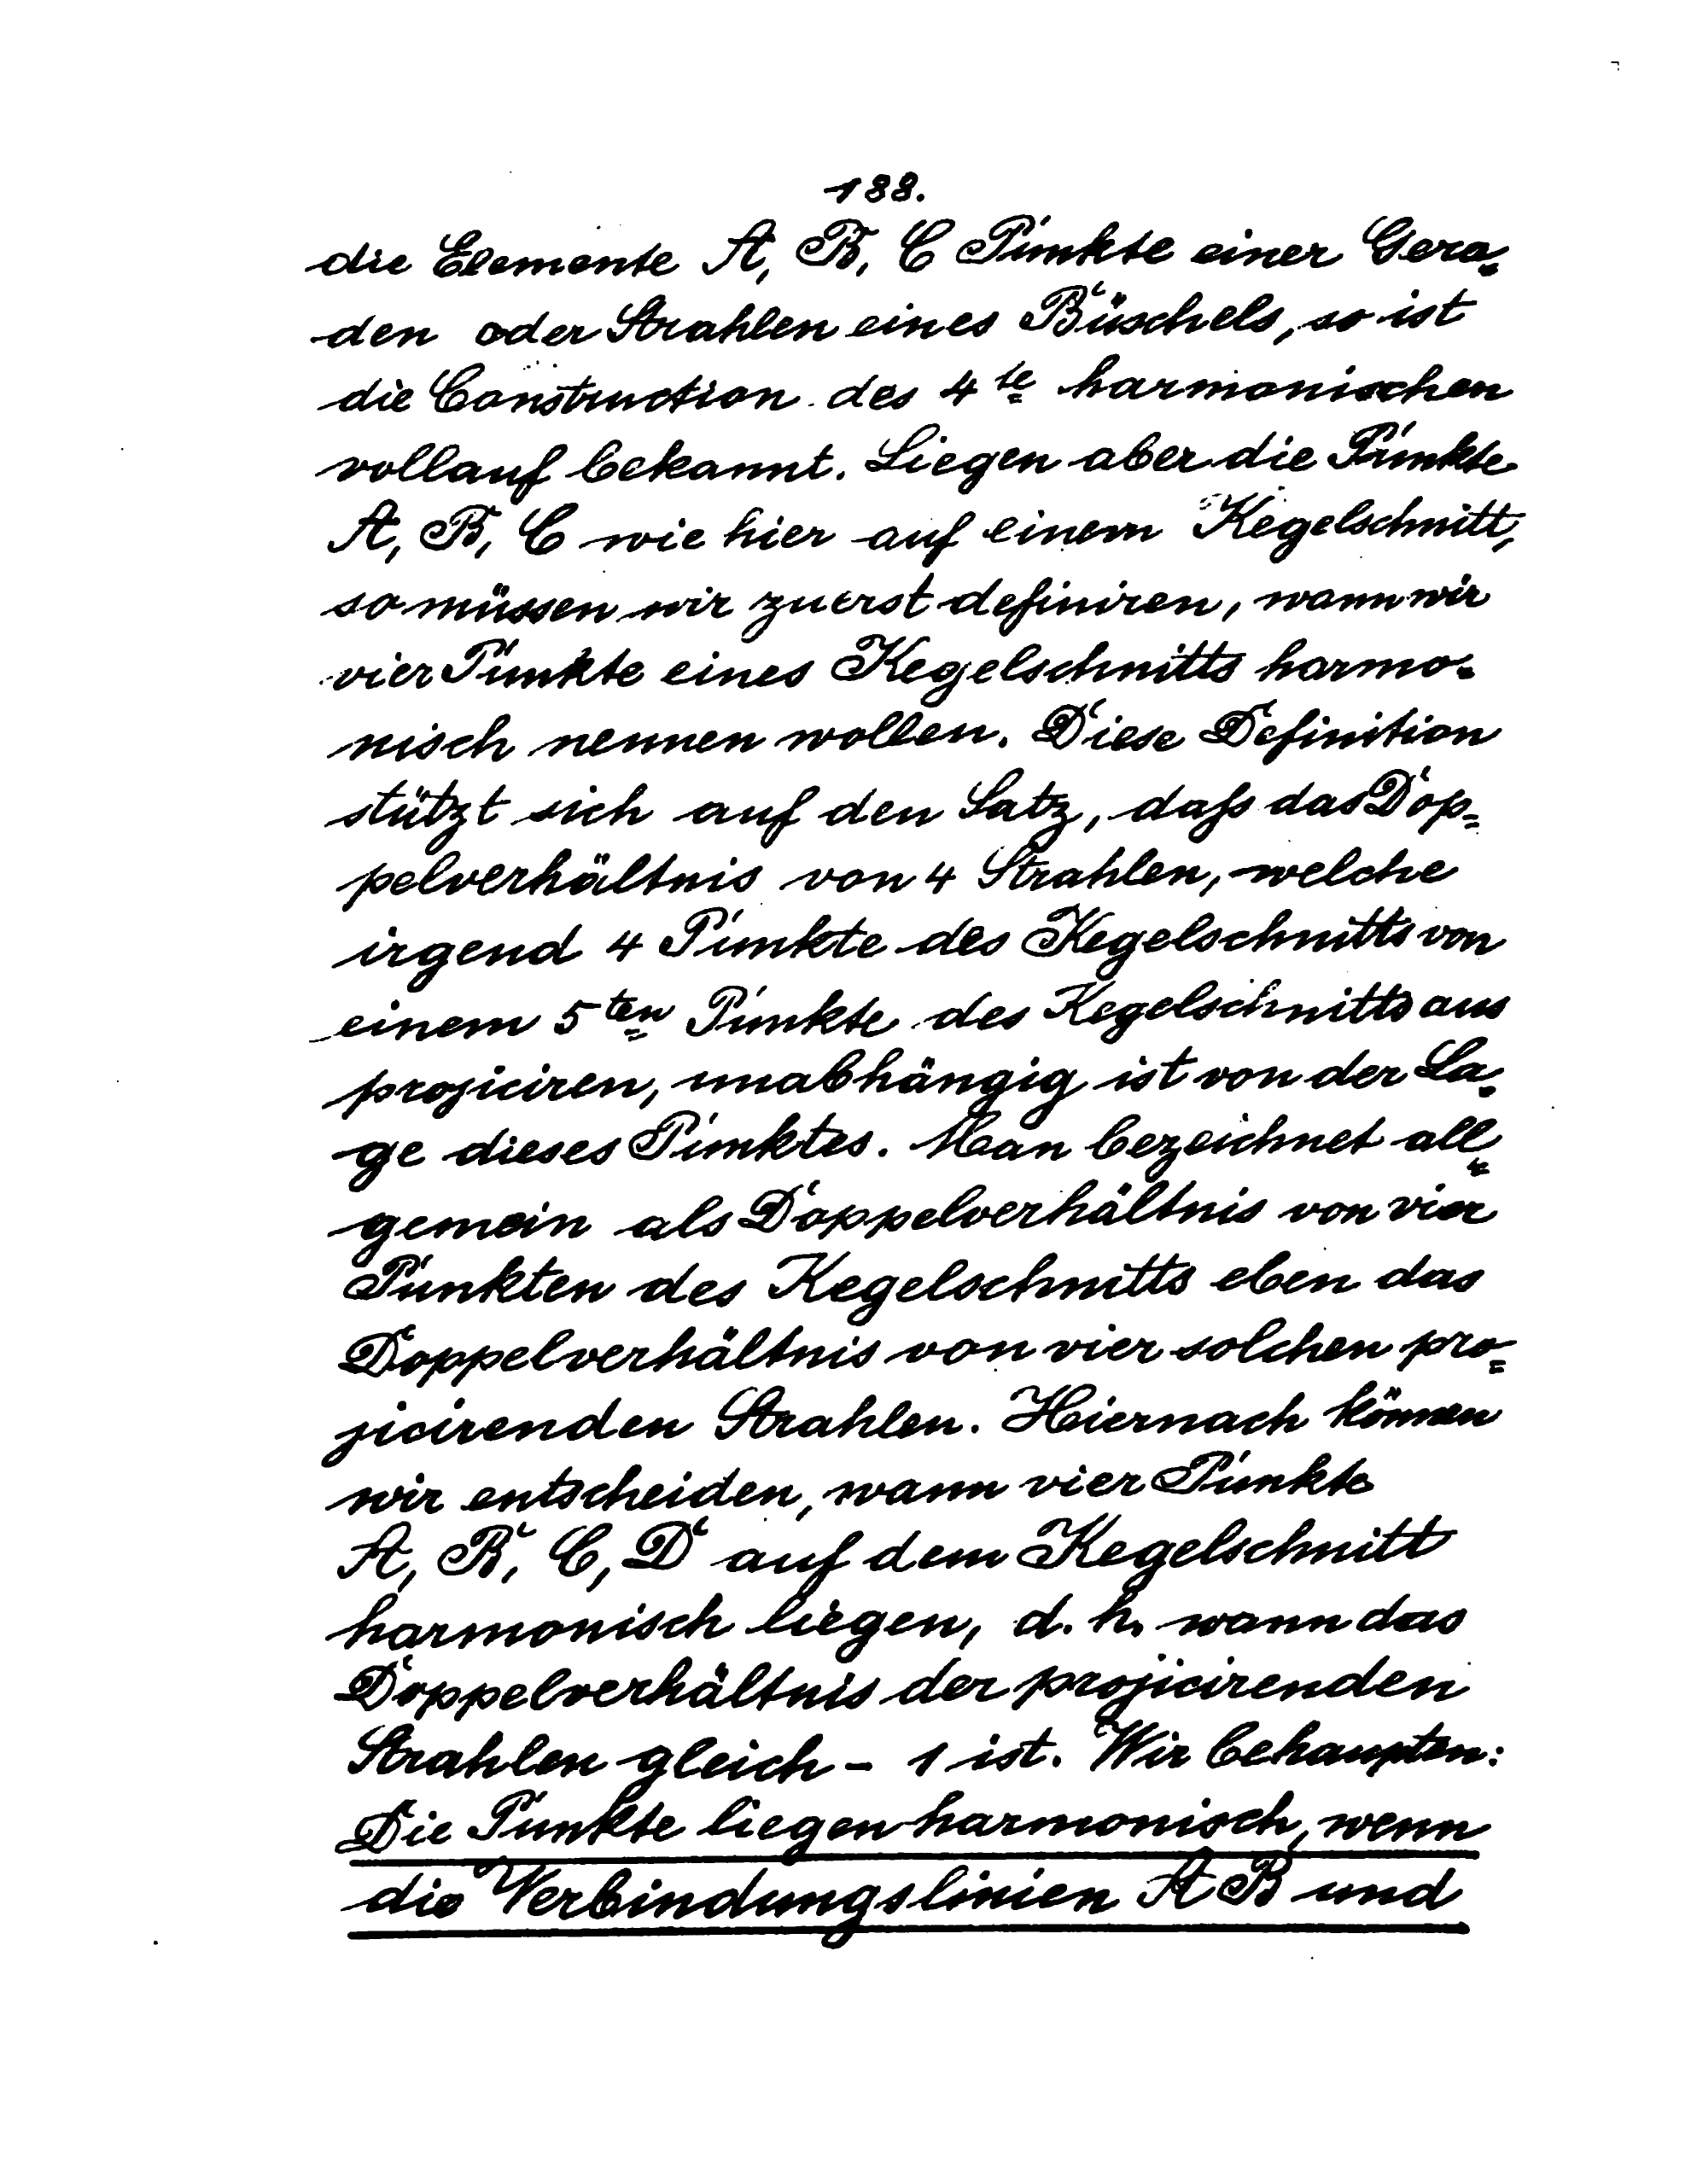 188.
die Elemente A, B, C Punkte einer Gera-
den oder Strahlen eines Büschels, so ist
die Construction des 4te harmonischen
vollauf bekannt. Liegen aber die Punkte
A, B, C wie hier auf einem Kegelschnitt,
so müssen wir zuerst definiren, wann wir
vier Punkte eines Kegelschnitts harmo-
nisch nennen wollen. Diese Definition
stützt sich auf den Satz, daß das Dop-
pelverhältnis von 4 Strahlen, welche
irgend 4 Punkte des Kegelschnitts von
einem 5ten Punkte des Kegelschnitts aus
projiciren, unabhängig ist von der La-
ge dieses Punktes. Man bezeichnet all-
gemein als Doppelverhältnis von vier
Punkten des Kegelschnitts eben das
Doppelverhältnis von vier solchen pro-
jicirenden Strahlen. Hiernach können
wir entscheiden, wann vier Punkte
A, B, C, D auf dem Kegelschnitt
harmonisch liegen, d. h. wann das
Doppelverhältnis der projicirenden
Strahlen gleich - 1 ist. Wir behaupten:
Die Punkte liegen harmonisch, wenn
die Verbindungslinien AB und